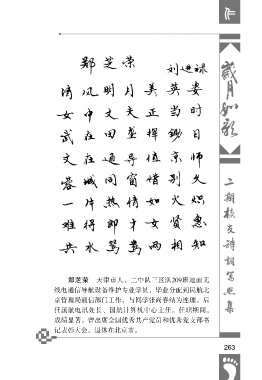 鄭芝荣
刘进禄
清风明月美英姿
女中丈夫正当时
武在田垄挥锄日
文在通导值京师
蓉城同窗惜别久
一片热情如火炽
难得郎才女贤惠
共水鸳鸯两相知
郑芝荣 天津市人，二中队三区队209班地面无
线电通信导航设备维护专业学员，毕业分配到民航北
京管理局通信部门工作，与同学张尚春结为连理。后
任国航电讯处长、国航计算机中心主任。任职期间，
成绩显著，曾出席全国优秀共产党员和优秀党支部书
记表彰大会。退休在北京市。
岁月如歌
二期校友诗词写照集
263